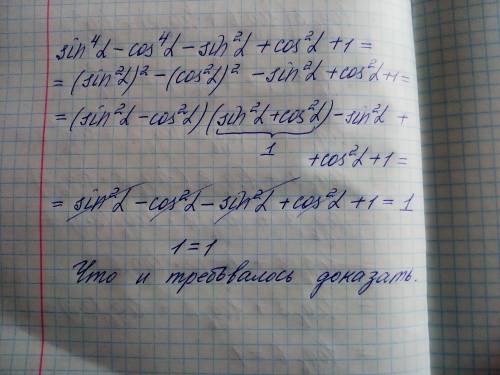 sin⁴α - cos⁴α - sin²α + cos²α + 1 =
= (sin²α)² - (cos²α)² - sin²α + cos²α + 1 =
= (sin²α - cos²α)(sin²α + cos²α) - sin²α +
1
+ cos²α + 1 =
= sin²α - cos²α - sin²α + cos²α + 1 = 1
1 = 1
Что и требовалось доказать.